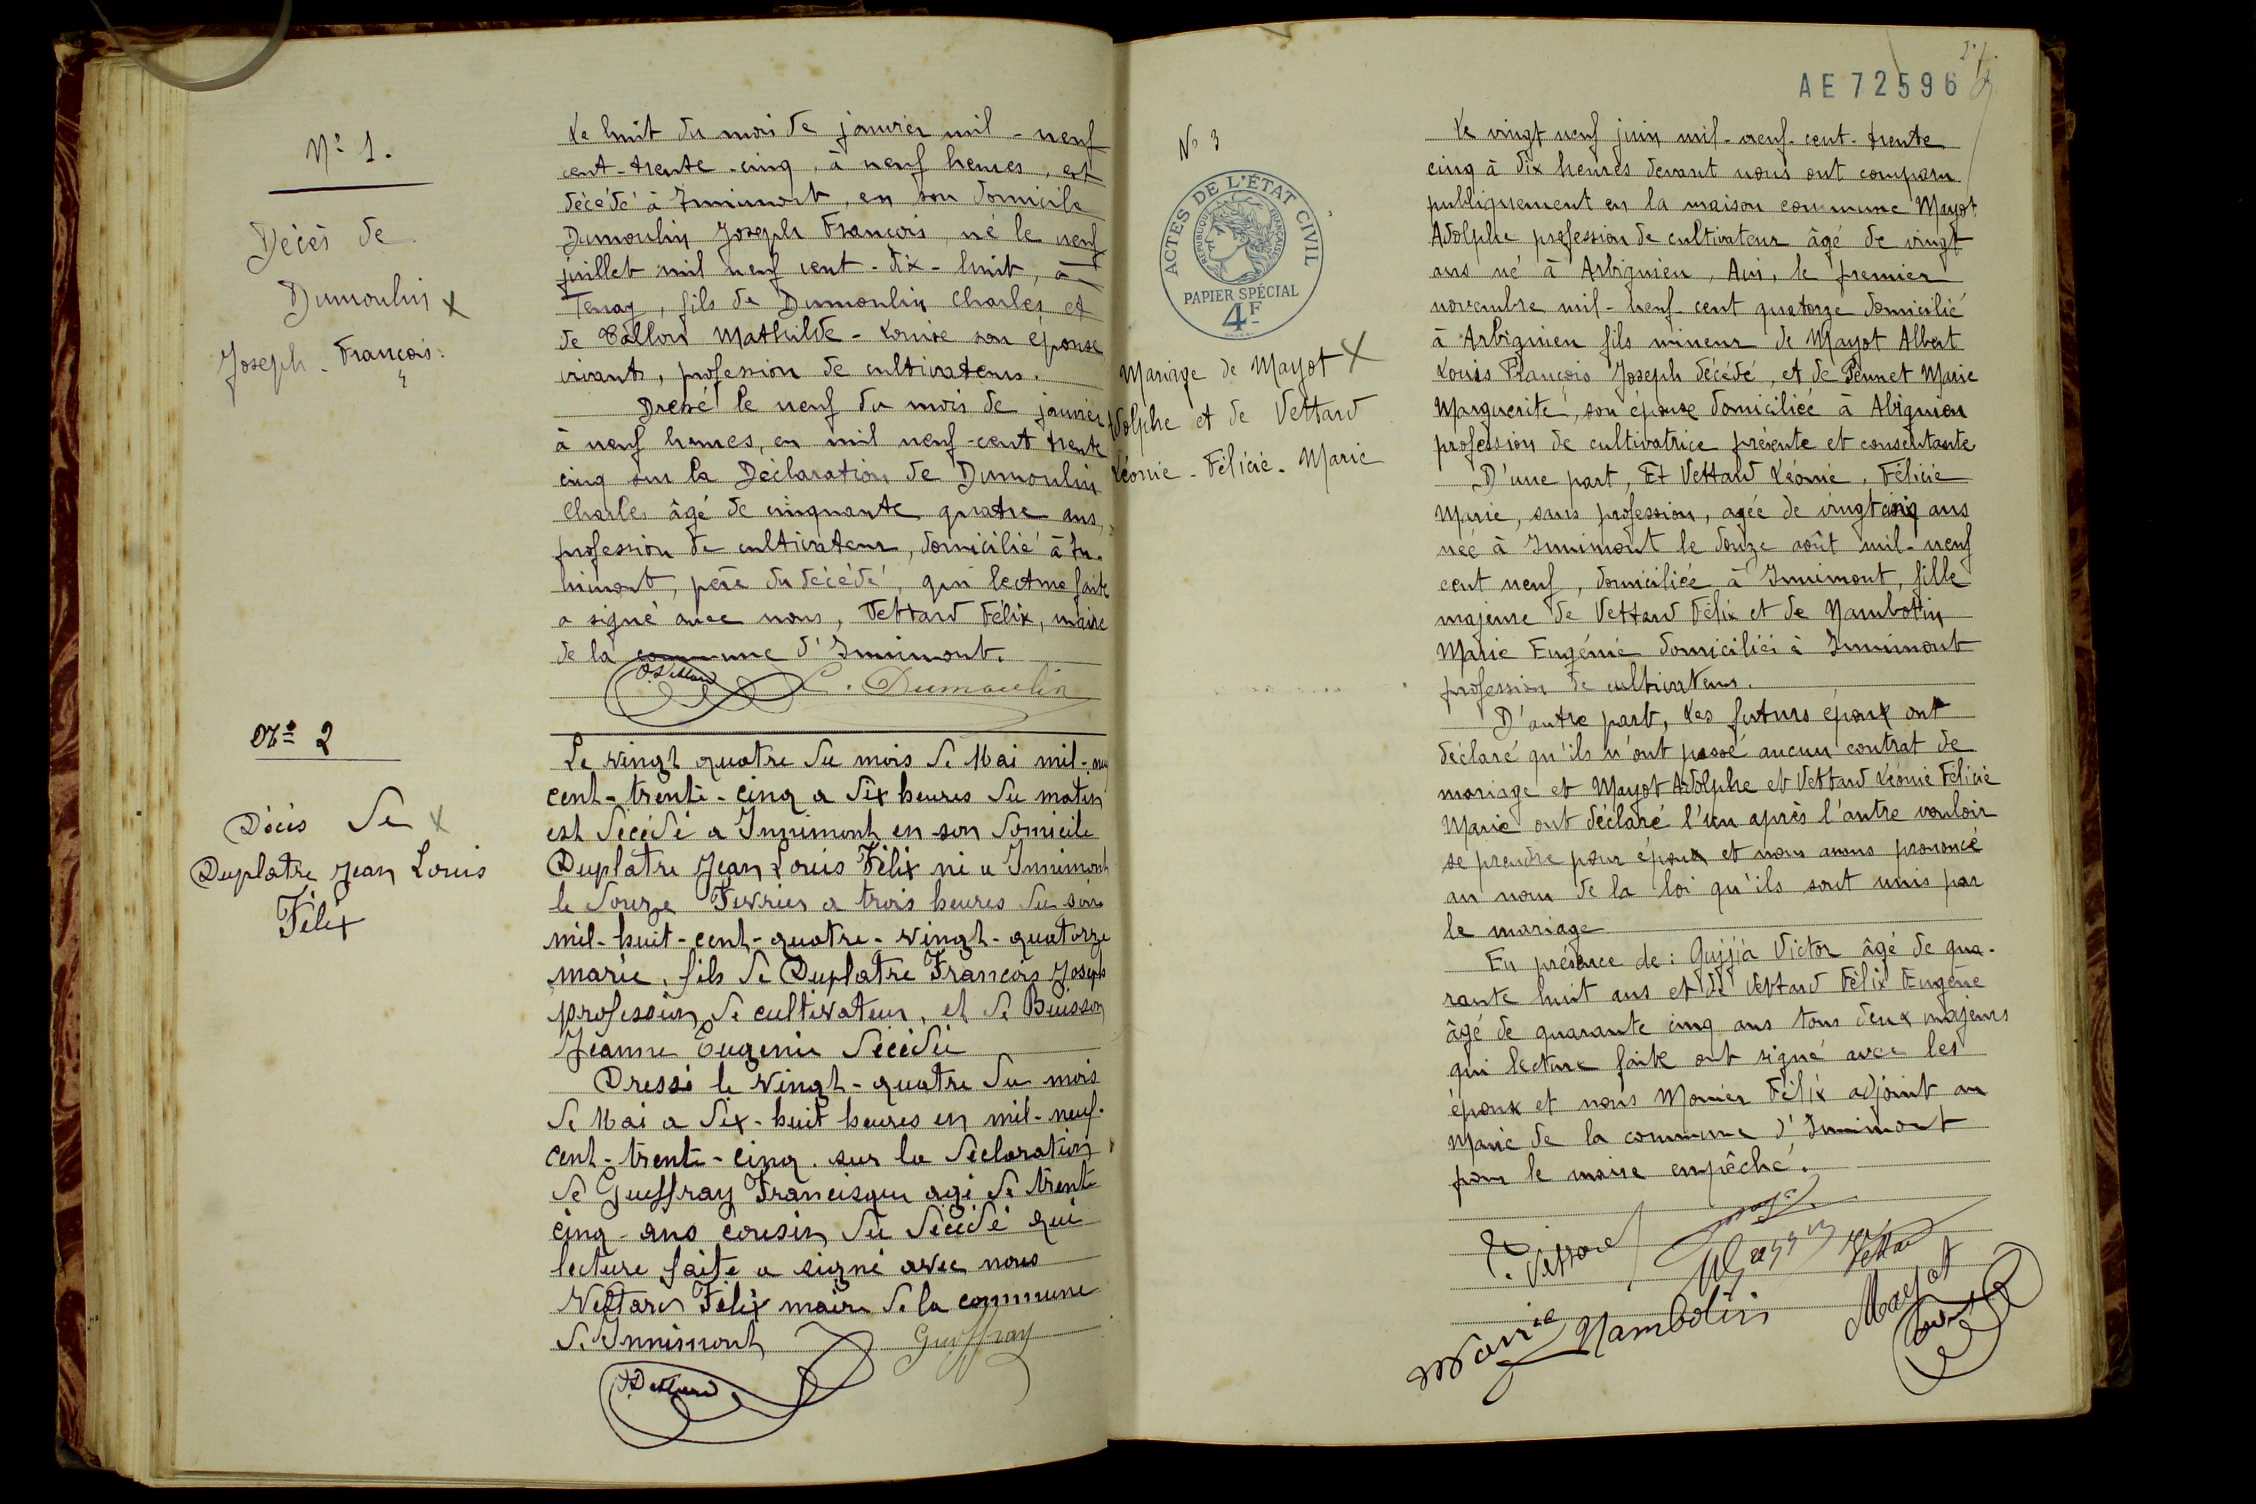 N° 1.
Décès de
Dumoulin x
Joseph - François.
Le huit du mois de janvier mil - neuf
cent - trente - cinq, à neuf heures, est
décédé à Innimont, en son domicile
Dumoulin Joseph François, né le neuf
juillet mil neuf cent - dix - huit, à
Tenay, fils de Dumoulin Charles et
de Mathilde - Louise son épouse
vivants, profession de cultivateurs.
Dressé le neuf du mois de janvier
à neuf heures, en mil neuf - cent trente
cinq sur la Déclaration de Dumoulin
Charles âgé de cinquante quatre ans,
profession de cultivateur, domicilié à In-
nimont, père du décédé, qui lecture faite
a signé avec nous, Vettard Félix, maire
de la commune d'Innimont.
F. Vettard C. Dumoulin
N° 2
Décès de x
Duplatre Jean Louis
Félix
Le vingt quatre du mois de Mai mil - neuf
cent - trente - cinq a dix heures du matin
est décédé a Innimont en son domicile
Duplatre Jean Louis Félix né a Innimont
le douze Fevrier a trois heures du soir
mil - huit - cent - quatre - vingt - quatorze
marié, fils de Duplatre François Joseph
profession de cultivateur, et de Buisson
Jeanne Eugenie décédée
Dressé le vingt - quatre du mois
de Mai a dix - huit heures en mil - neuf -
cent - trente - cinq. sur la déclaration
de Gueffray Francisque agé de trente
cinq - ans cousin du décédé qui
lecture faite a signé avec nous
Vettard Félix maire de la commune
d'Innimont Gueffray
F. Vettard
AE 72596
N° 3
ACTES DE L'ÉTAT CIVIL
RÉPUBLIQUE FRANÇAISE
PAPIER SPÉCIAL
4F
Mariage de Mayot x
Adolphe et de Vettard
Léonie - Félicie - Marie
Le vingt neuf juin mil - neuf - cent - trente
cinq à dix heures devant nous ont comparu
publiquement en la maison commune Mayot
Adolphe profession de cultivateur âgé de vingt
ans né à Arbignieu, Ain, le premier
novembre mil - neuf - cent quatorze domicilié
à Arbignieu fils mineur de Mayot Albert
Louis François Joseph décédé, et de Pennet Marie
Marguerite, son épouse domiciliée à Abignieu
profession de cultivatrice présente et consentante
D'une part, Et Vettard Léonie, Félicie
Marie, sans profession, agée de vingt cinq ans
née à Innimont le douze août mil - neuf
cent neuf, domiciliée à Innimont, fille
majeure de Vettard Félix et de Nambotin
Marie Eugénie domiciliés à Innimont
profession de cultivateurs.
D'autre part, Les futurs époux ont
déclaré qu'ils n'ont passé aucun contrat de
mariage et Mayot Adolphe et Vettard Léonie Félicie
Marie ont déclaré l'un après l'autre vouloir
se prendre pour époux et nous avons prononcé
au nom de la loi qu'ils sont unis par
le mariage
En présence de : Victor âgé de qua-
rante huit ans et de Vettard Félix Eugène
âgé de quarante cinq ans tous deux majeurs
qui lecture faite ont signé avec les
époux et nous Monier Félix adjoint au
Marie de la commune d'Innimont
pour le maire empêché.
F. Vettard
Vettard
Mayot
Marie Nambotin